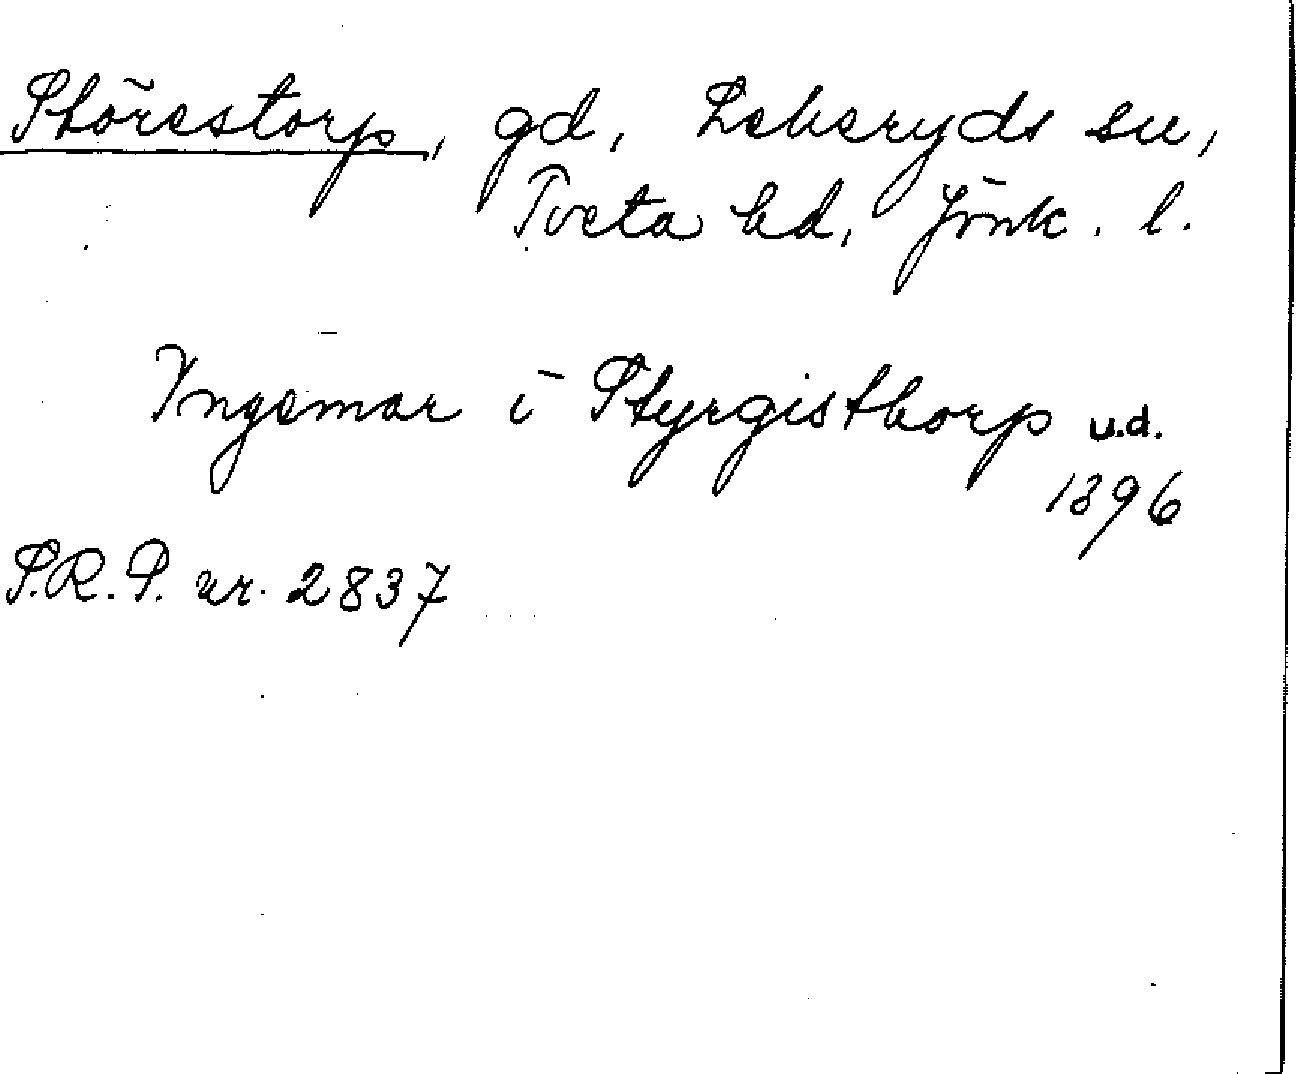 Störestorp, gd, Lekeryds sn,
Tveta hd, Jönk. l.
Yngemar i Styrgisthorp u.d.
1396
S.R.P. nr. 2837